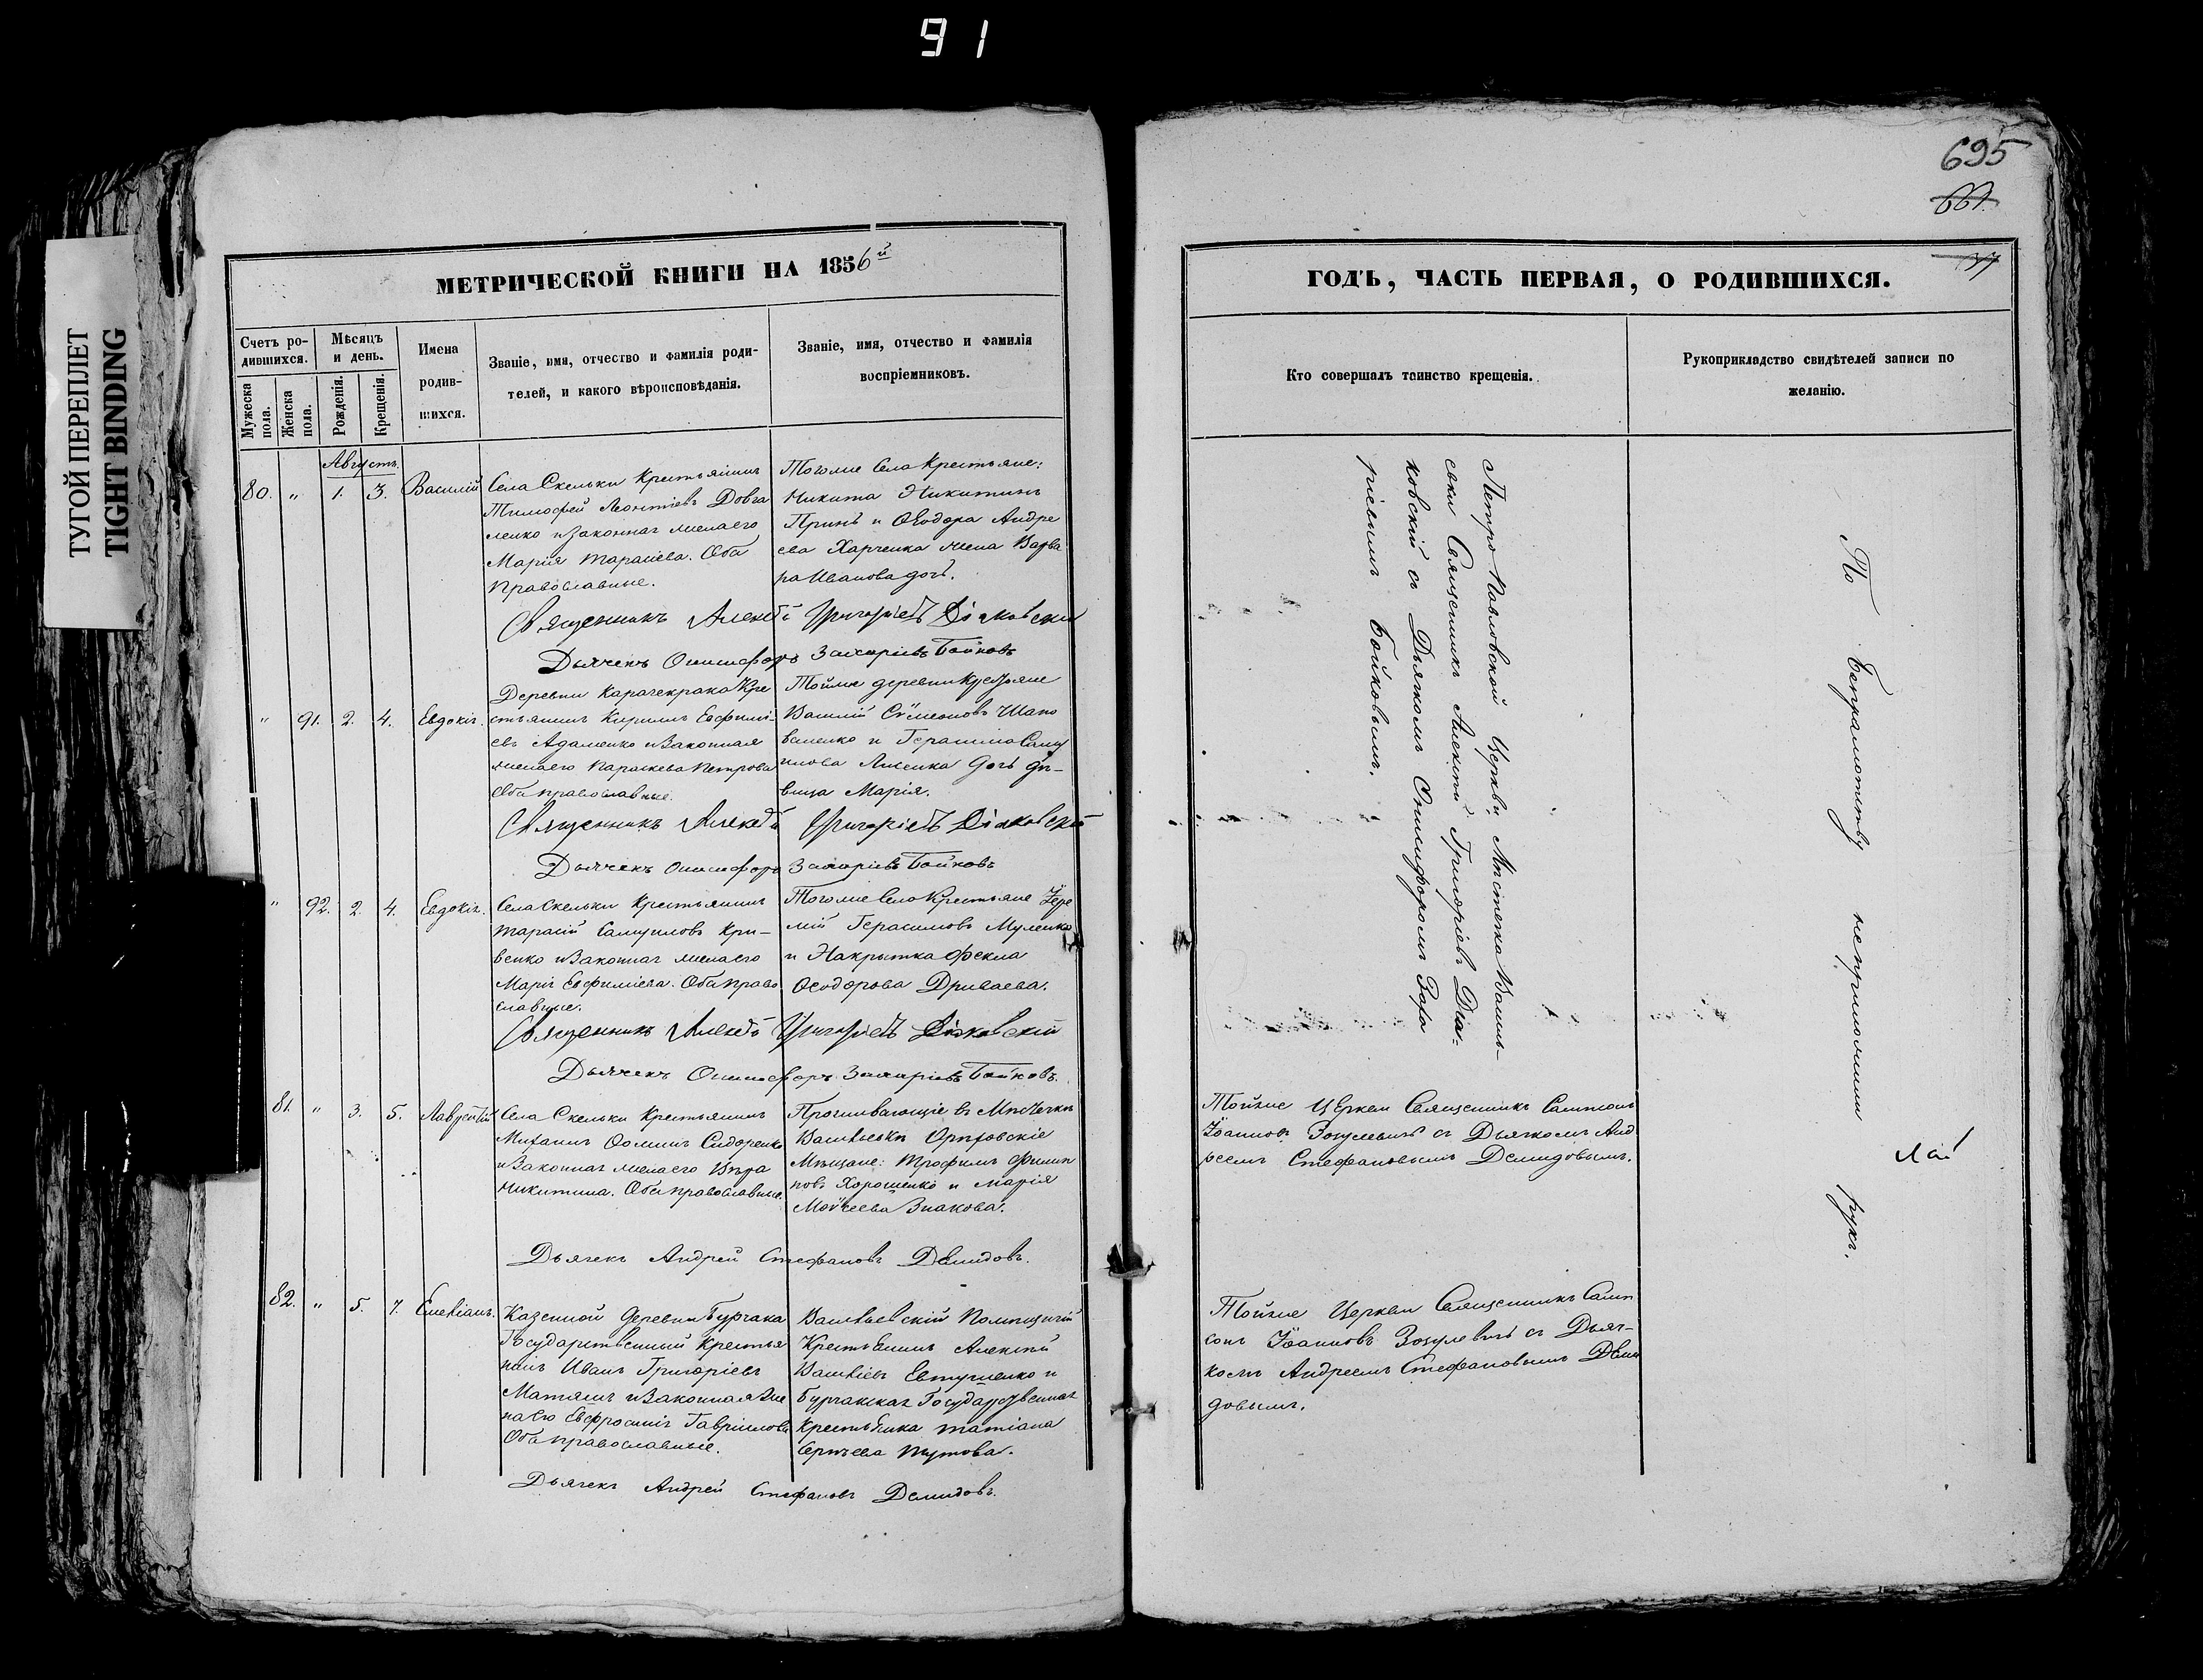 91
ТУГОЙ ПЕРЕПЛЕТ
TIGHT BINDING
МЕТРИЧЕСКОЙ КНИГИ НА 1856й
Счетъ ро-
дившихся.
Мѣсяцъ
и день.
Имена
родив-
шихся.
Званіе, имя, отчество и фамилія роди-
телей, и какого вѣроисповѣданія.
Званіе, имя, отчество и фамилія
воспріемниковъ.
Мужеска
пола.
Женска
пола.
Рожденія.
Крещенія.
Августъ.
80. „ 1. 3. Василій
Села Скельки Крестьянинъ
Тимофей Леонтіевъ Довга
ленко и Законная жена его
Марія Тарасіева. Оба
Православные.
Тогоже Села Крестьяне:
Никита Никитинъ
и Ѳеодора Андре
ева Харченка жена Варва
ра Иванова дочь.
Священникъ Алексѣй Григоріевъ Діаковскій
Дьячекъ Онисифоръ Захаріевъ Бойковъ
„ 91. 2. 4. Евдокія.
Деревни Карачекрака Кре
стьянинъ Кириллъ Евфимі-
евъ Адаменко и Законная
жена его Параскева Петрова
Оба православные.
Тойже деревни Крестьяне
Василій Сѵмеоновъ Шапо
валенко и Герасима Саму
илова Лисенка дочь дѣ-
вица Марія.
Священникъ Алексѣй Григоріевъ Діаковскій
Дьячекъ Онисифоръ Захаріевъ Бойковъ
„ 92. 2. 4. Евдокія.
Села Скельки Крестьянинъ
Тарасій Самуиловъ Кри-
венко и Законная жена его
Марія Евфиміева. Оба право
славные.
Тогоже Села Крестьяне Іере
мій Герасимовъ Муленко
и Накрытка Фекла
Ѳеодорова Дриваева.
Священникъ Алексѣй Григоріевъ Діаковскій
Дьячекъ Онисифоръ Захаріевъ Бойковъ.
81. „ 3. 5. Лаврентій
Села Скельки Крестьянинъ
Михаилъ Ѳоминъ Сидоренко
и Законная жена его Вѣра
Никитина. Оба православные.
Проживающіе в Мѣстечкѣ
Васильевки Орѣховскіе
Мѣщане: Трофимъ Филип
повъ Хорошенко и Марія
Моѵсеева Знакова.
Дьячекъ Андрей Стефановъ Демидовъ.
82. „ 5. 7. Емеліанъ.
Казенной деревни Бурчака
Государственный Крестья
нинъ Иванъ Григоріевъ
Матяшъ и Законная же
на его Евфросинія Гавріилова
Оба православные.
Васильевскій Помѣщичій
Крестьянинъ Алексѣй
Василіевъ Евтушенко и
Бурчакская Государственная
Крестьянка Татіана
Сергѣева Шутова.
Дьячекъ Андрей Стефановъ Демидовъ.
695
ГОДЪ, ЧАСТЬ ПЕРВАЯ, О РОДИВШИХСЯ.
Кто совершалъ таинство крещенія.
Рукоприкладство свидѣтелей записи по
желанію.
Петро-Павловской Церкви Мѣстечка Василь-
евки Священникъ Алексѣй Григоріевъ Діа-
ковскій съ Дьячкомъ Онисифоромъ Заха
ріевымъ Бойковымъ.
Тойже Церкви Священникъ Сампсонъ
Іоанновъ Зосулевичъ съ Дьячкомъ Анд
реемъ Стефановымъ Демидовымъ.
Тойже Церкви Священникъ Самп
сонъ Іоанновъ Зосулевичъ съ Дьяч-
комъ Андреемъ Стефановымъ Деми
довымъ.
По безграмотству неприложили рукъ.